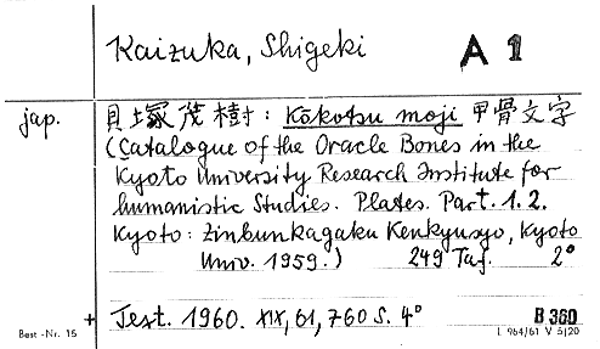 Kaizuka, Shigeki A 1
jap. 貝塚茂樹: Kōkotsu moji 甲骨文字
(Catalogue of the Oracle Bones in the
Kyoto University Research Institute for
humanistic Studies. Plates. Part. 1. 2.
Kyoto: Zinbunkagaku Kenkyusyo, Kyoto
Univ. 1959.) 249 Taf. 2°
+ Text. 1960. XIX, 61, 760 S. 4° B 360
Best.-Nr. 15 L 964/61 V 5/20